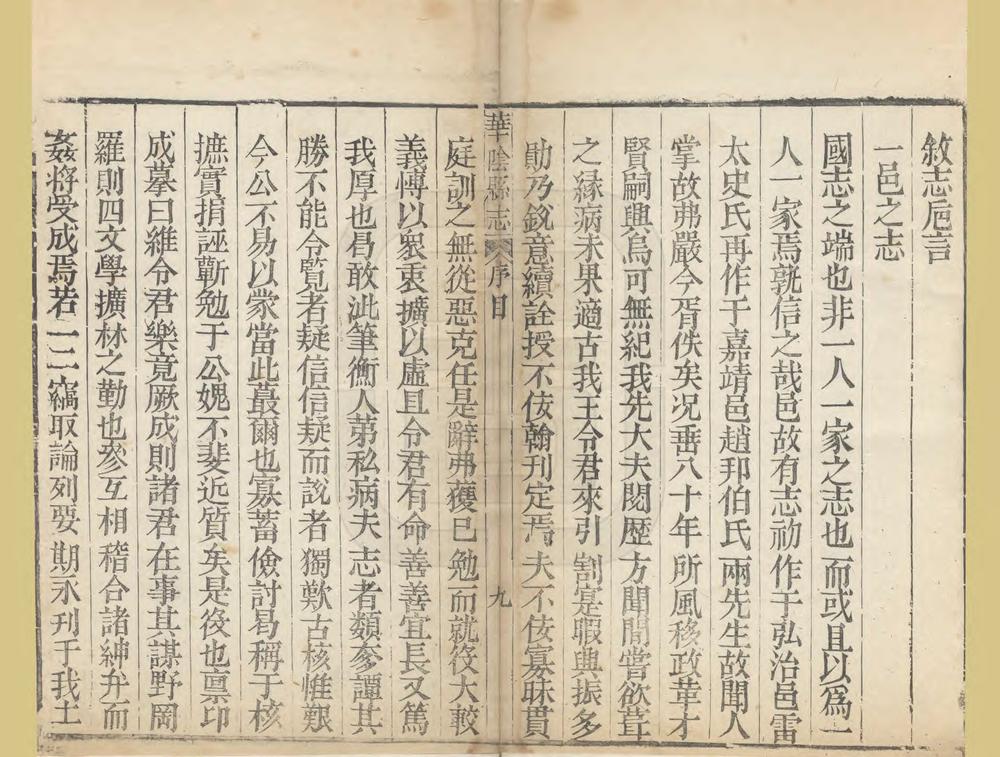 敘志巵言
一邑之志
國志之端也非一人一家之志也而或且以為一
人一家焉孰信之哉邑故有志初作于弘治邑雷
太史氏再作于嘉靖邑趙邦伯氏兩先生故聞人
掌故弗嚴今胥佚矣况垂八十年所風移政革才
賢嗣興烏可無紀我先大夫閱歷方聞間嘗欲葺
之緣病未果適古我王令君來引割寔暇典振多
勛乃銳意續詮授不佞翰刊定焉夫不佞寡昧貫
華陰縣志 序目 九
庭訓之無從惡克任是辭弗獲已勉而就役大較
義愽以裒衷擴以虛且令君有命善善宜長又篤
我厚也曷敢泚筆衡人第私病夫志者類奓譚其
勝不能令覽者疑信信疑而說者獨歎古核惟艱
今公不易以蒙當此蕞爾也寡蓄儉討曷稱于核
摭實捐誣蘄勉于公媿不斐近質矣是役也稟印
成摹曰維令君樂竟厥成則諸君在事其謀野罔
羅則四文學擴林之勤也參互相稽合諸紳弁而
姦將受成焉若一二竊取論列要期永刊于我土